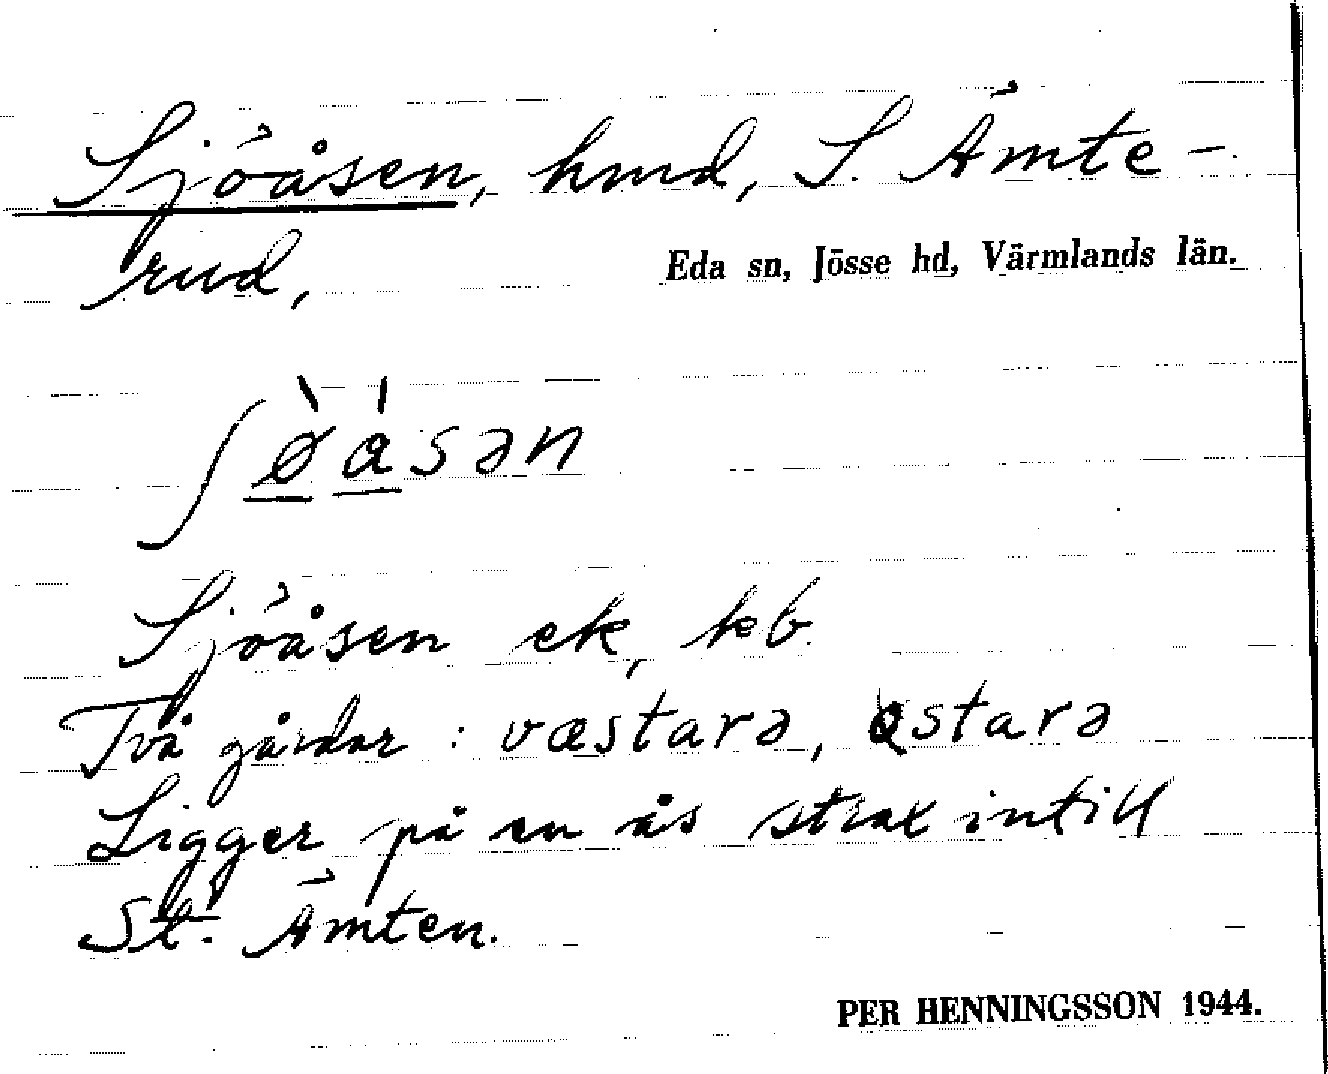 Sjöåsen, hmd, S. Ämte-
rud,
Eda sn, Jösse hd, Värmlands län.
ʃø̠̀á̠sən
Sjöåsen ek, kb.
Två gårdar : væstarə, østarə
Ligger på en ås strax intill
St. Ämten.
PER HENNINGSSON 1944.